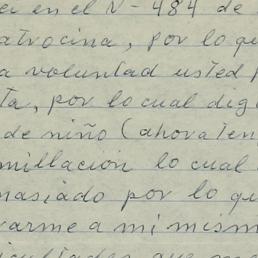 en el N-484 de
atrocina, por lo qu
a voluntad usted p
ta, por lo cual dig
de niño (ahora ten
millación lo cual
masiado por lo qu
varme a mi mism